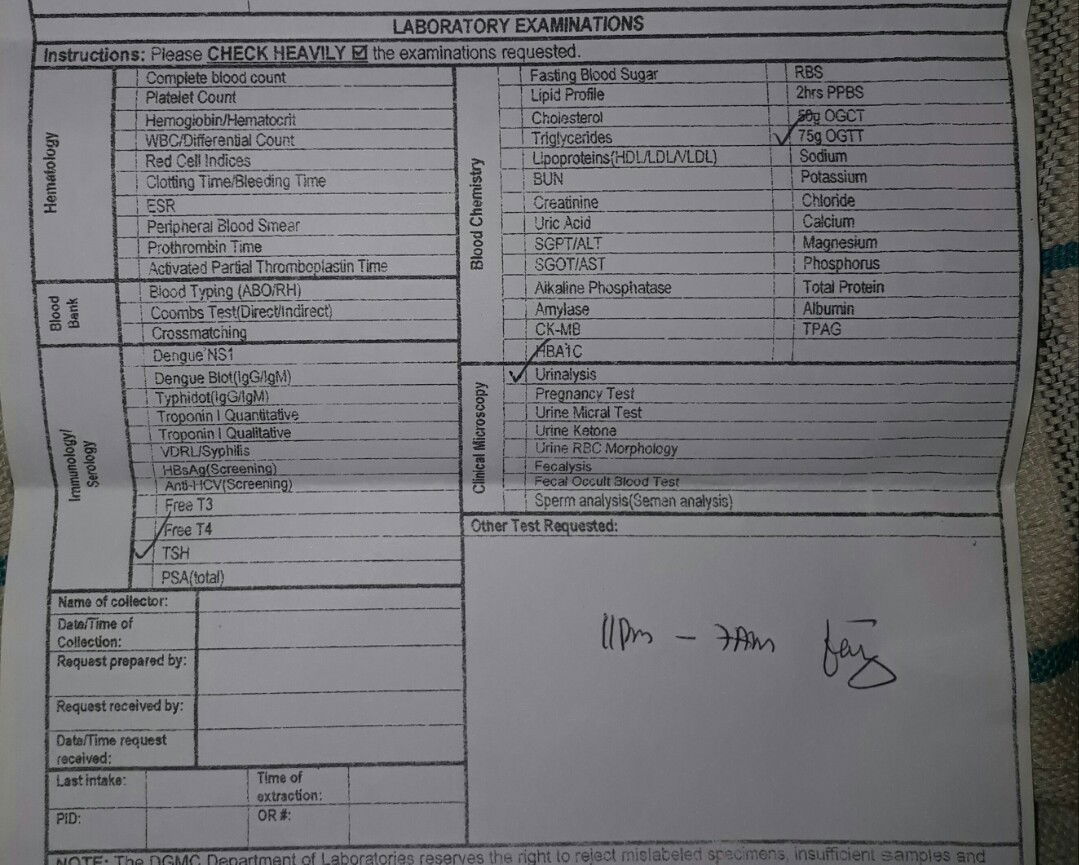 LABORATORY EXAMINATIONS
Instructions: Please CHECK HEAVILY ☑ the examinations requested.
Hematology
Complete blood count
Platelet Count
Hemoglobin/Hematocrit
WBC/Differential Count
Red Cell Indices
Clotting Time/Bleeding Time
ESR
Peripheral Blood Smear
Prothrombin Time
Activated Partial Thromboplastin Time
Blood Bank
Blood Typing (ABO/RH)
Coombs Test(Direct/Indirect)
Crossmatching
Immunology/
Serology
Dengue NS1
Dengue Blot(IgG/IgM)
Typhidot(IgG/IgM)
Troponin I Quantitative
Troponin I Qualitative
VDRL/Syphilis
HBsAg(Screening)
Anti-HCV(Screening)
Free T3
Free T4
✓ TSH
PSA(total)
Name of collector:
Date/Time of
Collection:
Request prepared by:
Request received by:
Date/Time request
received:
Last intake:
Time of
extraction:
PID:
OR #:
Blood Chemistry
Fasting Blood Sugar
Lipid Profile
Cholesterol
Triglycerides
Lipoproteins(HDL/LDL/VLDL)
BUN
Creatinine
Uric Acid
SGPT/ALT
SGOT/AST
Alkaline Phosphatase
Amylase
CK-MB
HBA1C
RBS
2hrs PPBS
50g OGCT
✓ 75g OGTT
Sodium
Potassium
Chloride
Calcium
Magnesium
Phosphorus
Total Protein
Albumin
TPAG
Clinical Microscopy
✓ Urinalysis
Pregnancy Test
Urine Micral Test
Urine Ketone
Urine RBC Morphology
Fecalysis
Fecal Occult Blood Test
Sperm analysis(Semen analysis)
Other Test Requested:
11pm - 7Am
NOTE: The DGMC Department of Laboratories reserves the right to reject mislabeled specimens, insufficient samples and